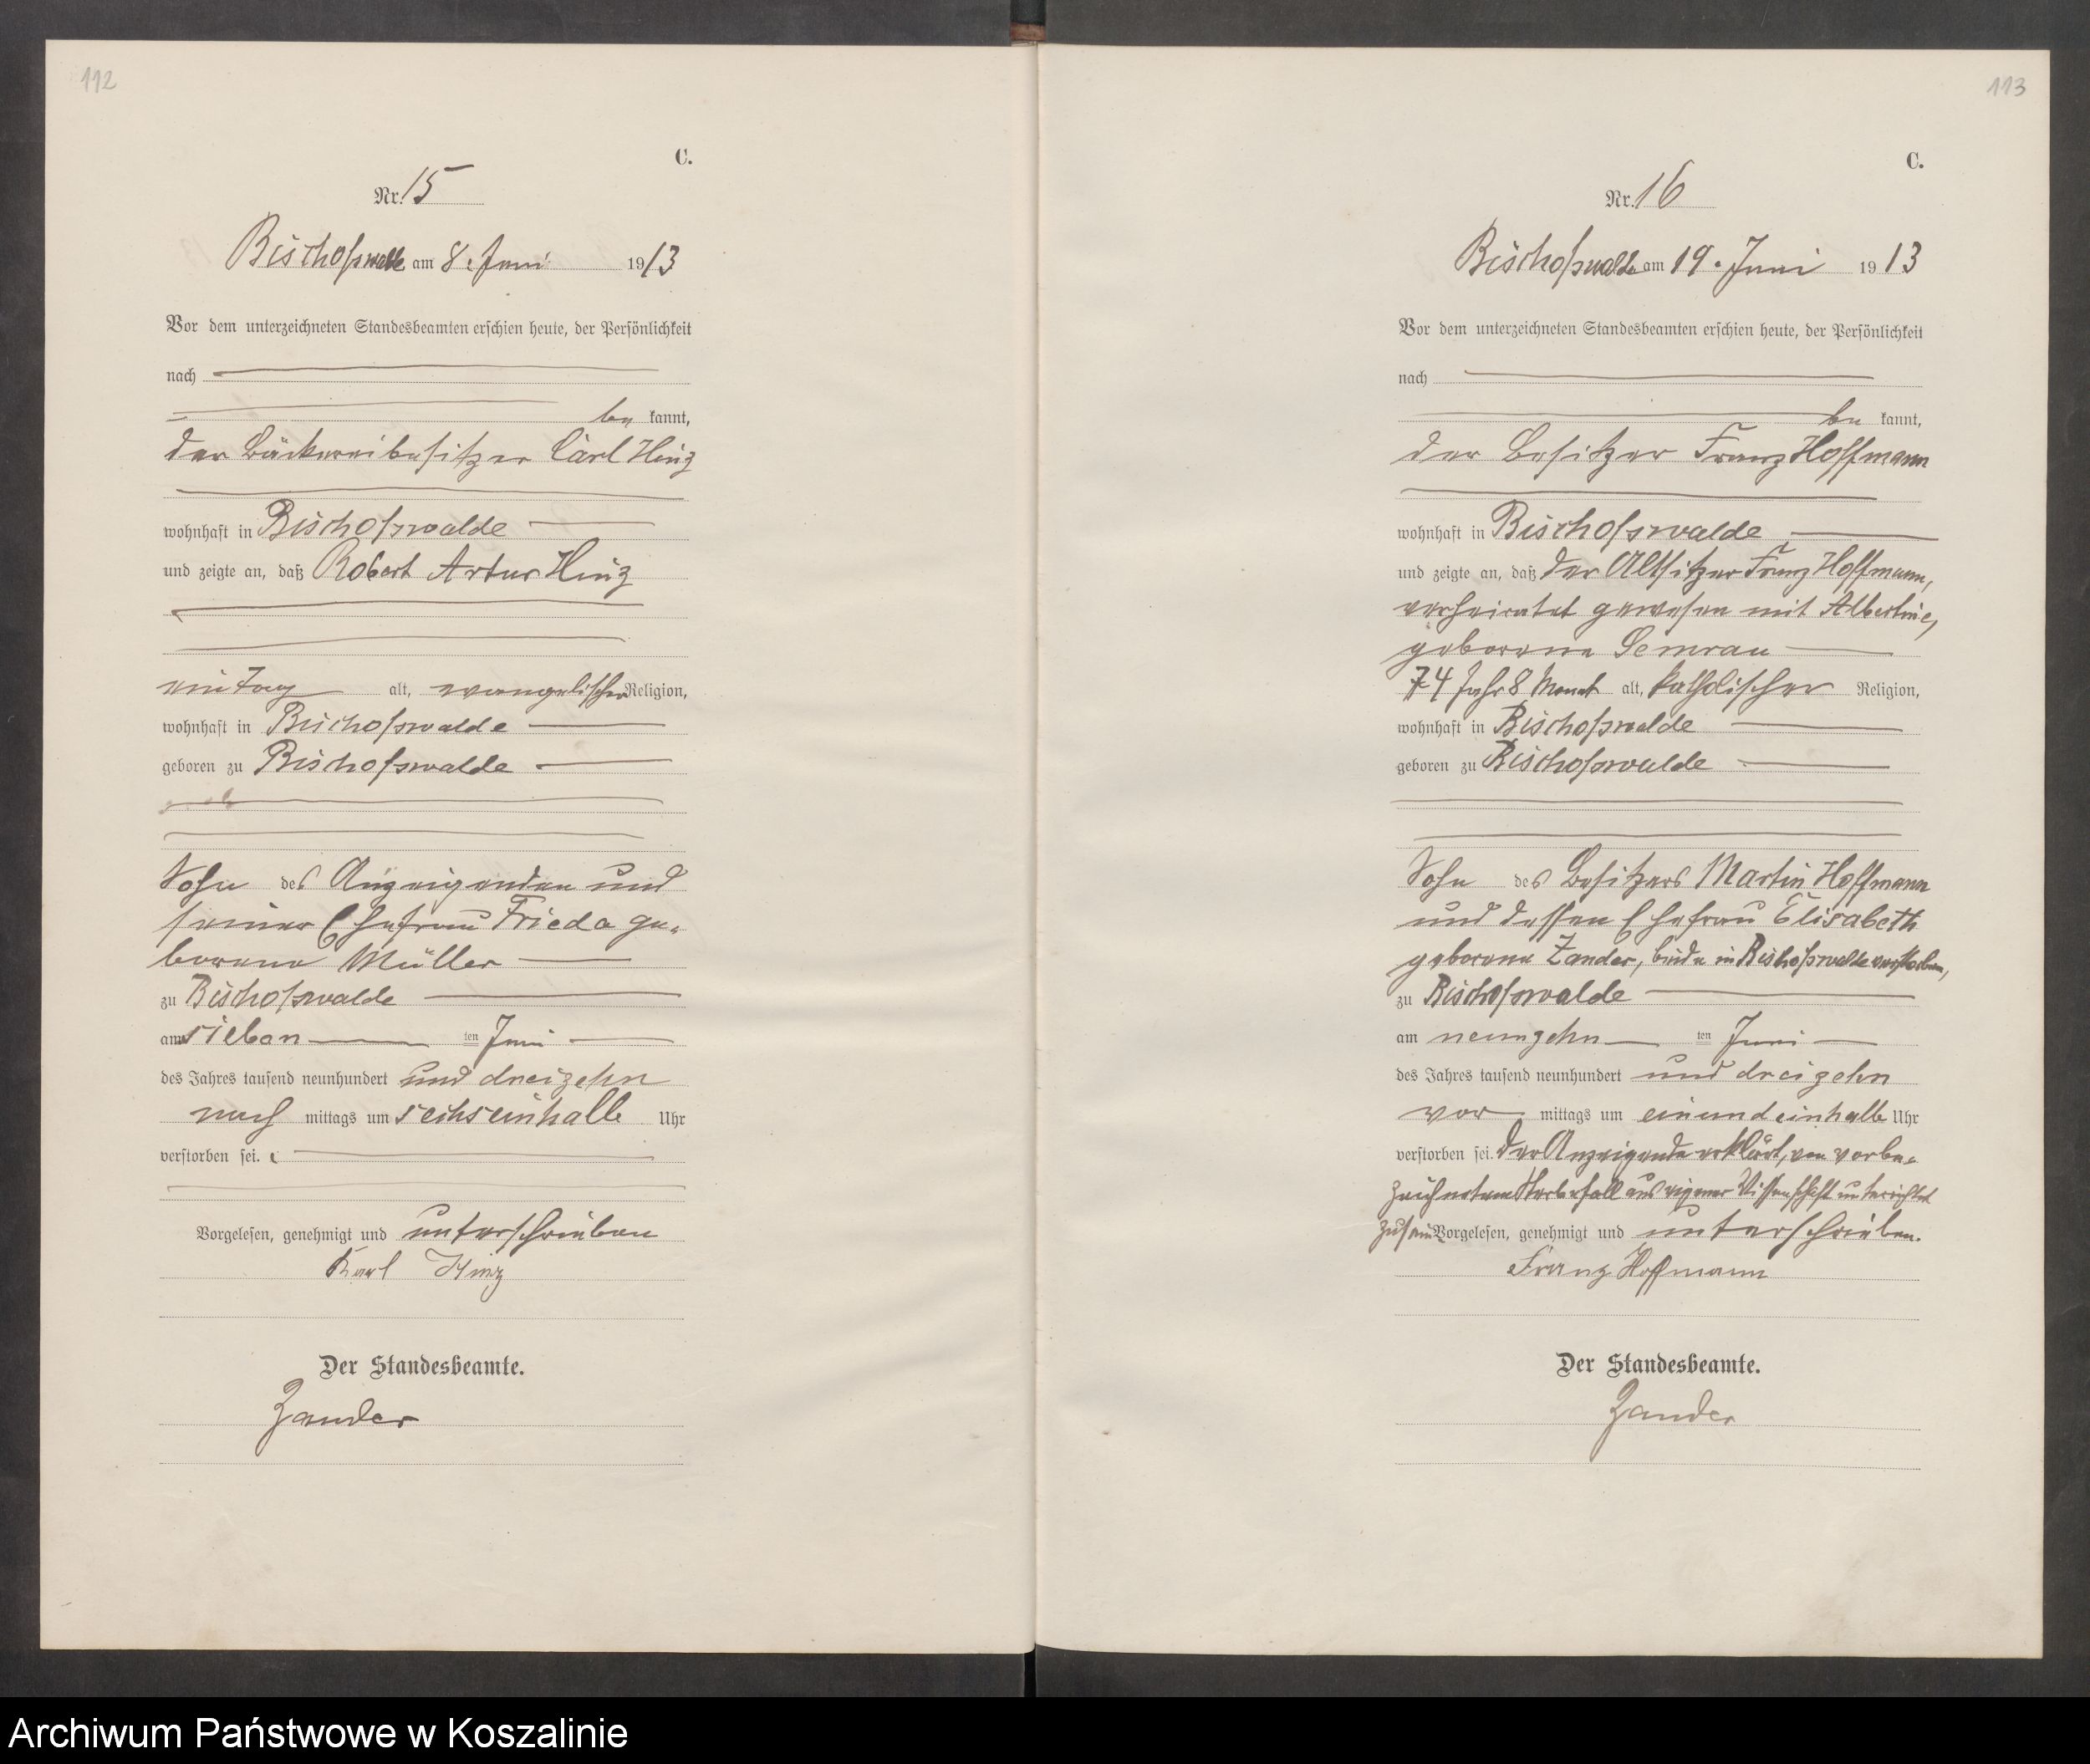 112
C.
Nr. 15
Bischofswalde am 8. Juni 1913
Vor dem unterzeichneten Standesbeamten erschien heute, der Persönlichkeit
nach
be kannt,
der Bäckereibesitzer Carl Hinz
wohnhaft in Bischofswalde
und zeigte an, daß Robert Artur Hinz
ein Tag alt, evangelischer Religion,
wohnhaft in Bischofswalde
geboren zu Bischofswalde
Sohn des Anzeigenden und
seiner Ehefrau Frieda ge-
borene Müller
zu Bischofswalde
am sieben ten Juni
des Jahres tausend neunhundert und dreizehn
nach mittags um sechseinhalb Uhr
verstorben sei.
Vorgelesen, genehmigt und unterschrieben
Karl Hinz
Der Standesbeamte.
Zander
113
C.
Nr. 16
Bischofswalde am 19. Juni 1913
Vor dem unterzeichneten Standesbeamten erschien heute, der Persönlichkeit
nach
be kannt,
der Besitzer Franz Hoffmann
wohnhaft in Bischofswalde
und zeigte an, daß der Altsitzer Franz Hoffmann,
verheiratet gewesen mit Albertine,
geborene Semrau
74 Jahr 8 Monat alt, katholischer Religion,
wohnhaft in Bischofswalde
geboren zu Bischofswalde
Sohn des Besitzers Martin Hoffmann
und dessen Ehefrau Elisabeth
geborene Zander, beide in Bischofswalde verstorben,
zu Bischofswalde
am neunzehn ten Juni
des Jahres tausend neunhundert und dreizehn
vor mittags um einundeinhalb Uhr
verstorben sei. Der Anzeigende erklärt, von vorbe-
zeichnetem Sterbefall aus eigener Wissenschaft unterrichtet
zu sein Vorgelesen, genehmigt und unterschrieben.
Franz Hoffmann
Der Standesbeamte.
Zander
Archiwum Państwowe w Koszalinie